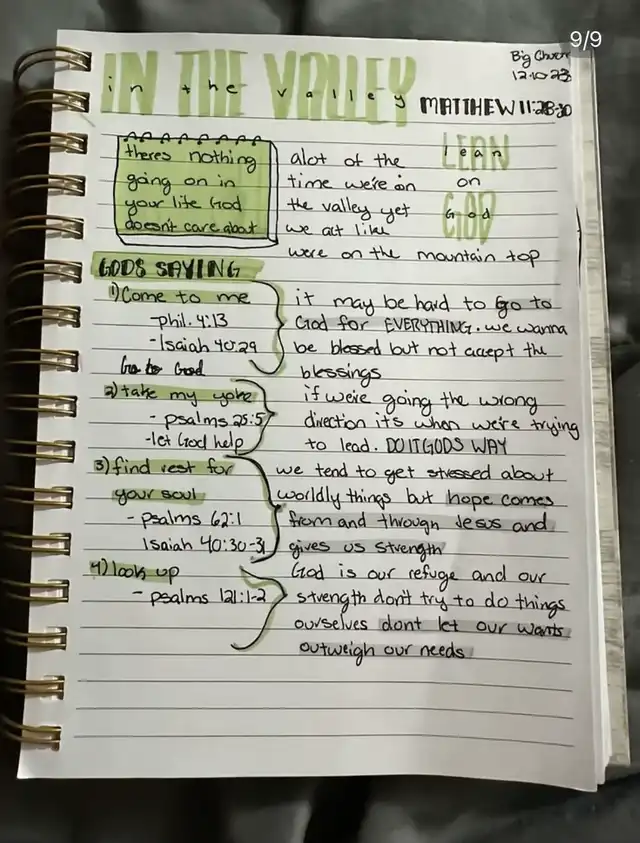 9/9
Big Church
12.10.23
IN THE VALLEY
in the valley
MATTHEW 11:28-30
theres nothing
going on in
your life God
doesn't care about
alot of the
time we're on
the valley yet
we act like
were on the mountain top
LEAN
lean
on
GOD
God
GODS SAYING
1) Come to me
- phil. 4:13
- Isaiah 40:29
Go to God
it may be hard to go to
God for EVERYTHING. we wanna
be blessed but not accept the
blessings
2) take my yoke
- psalms 25:5
- let God help
if we're going the wrong
direction its when we're trying
to lead. DO IT GODS WAY
3) find rest for
your soul
- psalms 62:1
Isaiah 40:30-31
we tend to get stressed about
worldly things but hope comes
from and through Jesus and
gives us strength
4) look up
- psalms 121:1-2
God is our refuge and our
strength don't try to do things
ourselves dont let our wants
outweigh our needs